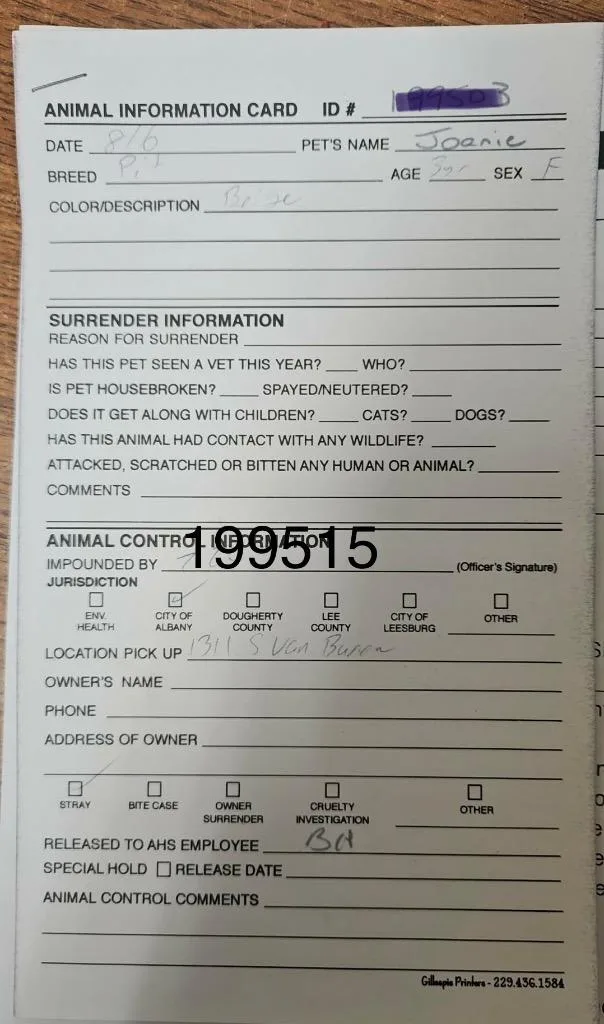 ANIMAL INFORMATION CARD ID # 199503
DATE 8/6 PET'S NAME Joanie
BREED Pit AGE 3yr SEX F
COLOR/DESCRIPTION
SURRENDER INFORMATION
REASON FOR SURRENDER
HAS THIS PET SEEN A VET THIS YEAR? WHO?
IS PET HOUSEBROKEN? SPAYED/NEUTERED?
DOES IT GET ALONG WITH CHILDREN? CATS? DOGS?
HAS THIS ANIMAL HAD CONTACT WITH ANY WILDLIFE?
ATTACKED, SCRATCHED OR BITTEN ANY HUMAN OR ANIMAL?
COMMENTS
ANIMAL CONTROL INFORMATION
199515
IMPOUNDED BY (Officer's Signature)
JURISDICTION
ENV. HEALTH CITY OF ALBANY DOUGHERTY COUNTY LEE COUNTY CITY OF LEESBURG OTHER
LOCATION PICK UP 1311 S Van Buren
OWNER'S NAME
PHONE
ADDRESS OF OWNER
STRAY BITE CASE OWNER SURRENDER CRUELTY INVESTIGATION OTHER
RELEASED TO AHS EMPLOYEE BH
SPECIAL HOLD RELEASE DATE
ANIMAL CONTROL COMMENTS
Gillespie Printers - 229.436.1584